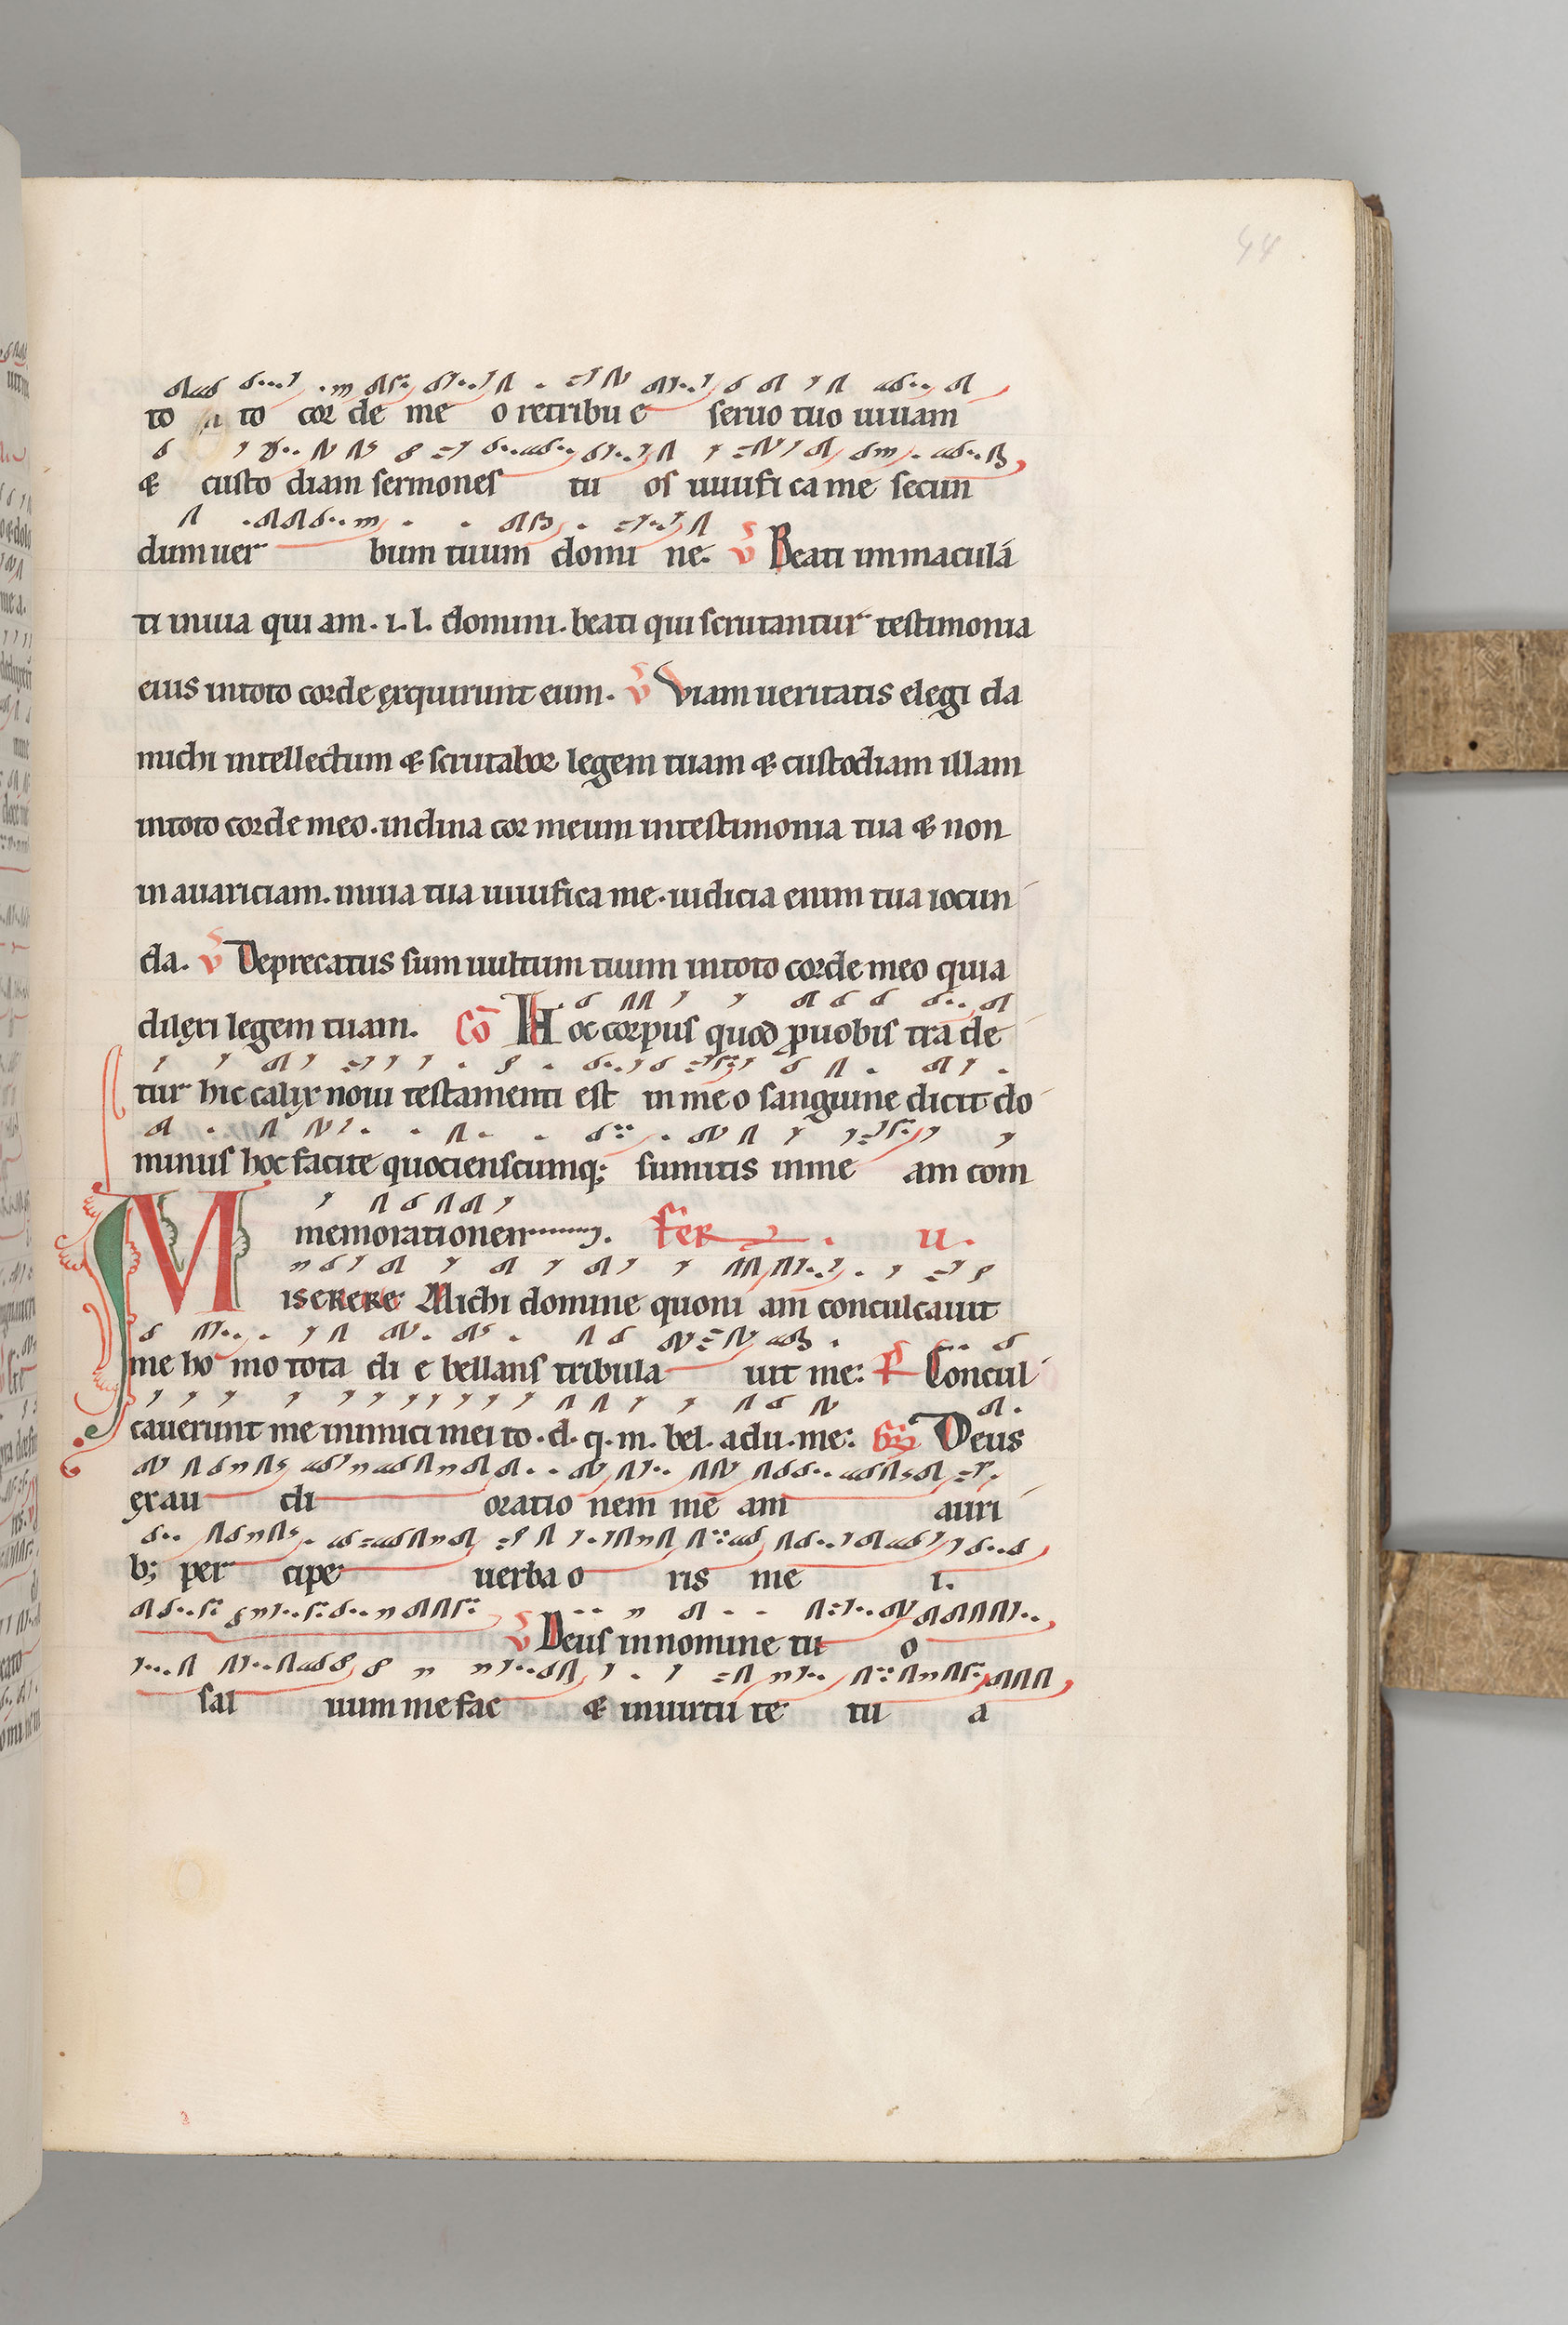 44
to to cor de me o retribu e seruo tuo uiuam
& custo diam sermones tu os uiuifi ca me secun
dum uer bum tuum domi ne. v̄ Beati immacula
ti in uia qui am. i. l. domini. beati qui scrutantur testimonia
eius in toto corde exquirunt eum. v̄ Viam ueritatis elegi da
michi intellectum & scrutabor legem tuam & custodiam illam
in toto corde meo. inclina cor meum in testimonia tua & non
in auariciam. in uia tua uiuifica me. iudicia enim tua iocun
da. v̄ Deprecatus sum uultum tuum in toto corde meo quia
dilexi legem tuam. Cō Hoc corpus quod ꝓ uobis tra de
tur hic calix noui testamenti est in me o sanguine dicit do
minus hoc facite quocienscumq; sumitis in me am com
memorationem. Fer u.
Miserere Michi domine quoni am conculcauit
me ho mo tota di e bellans tribula uit me: P̄ Concul
cauerunt me inimici mei to. d. q. m. bel. adu. me: Gr̄ Deus
exau di oratio nem me am auri
b; per cipe uerba o ris me i.
v̄ Deus in nomine tu o
sal uum me fac & in uirtu te tu a